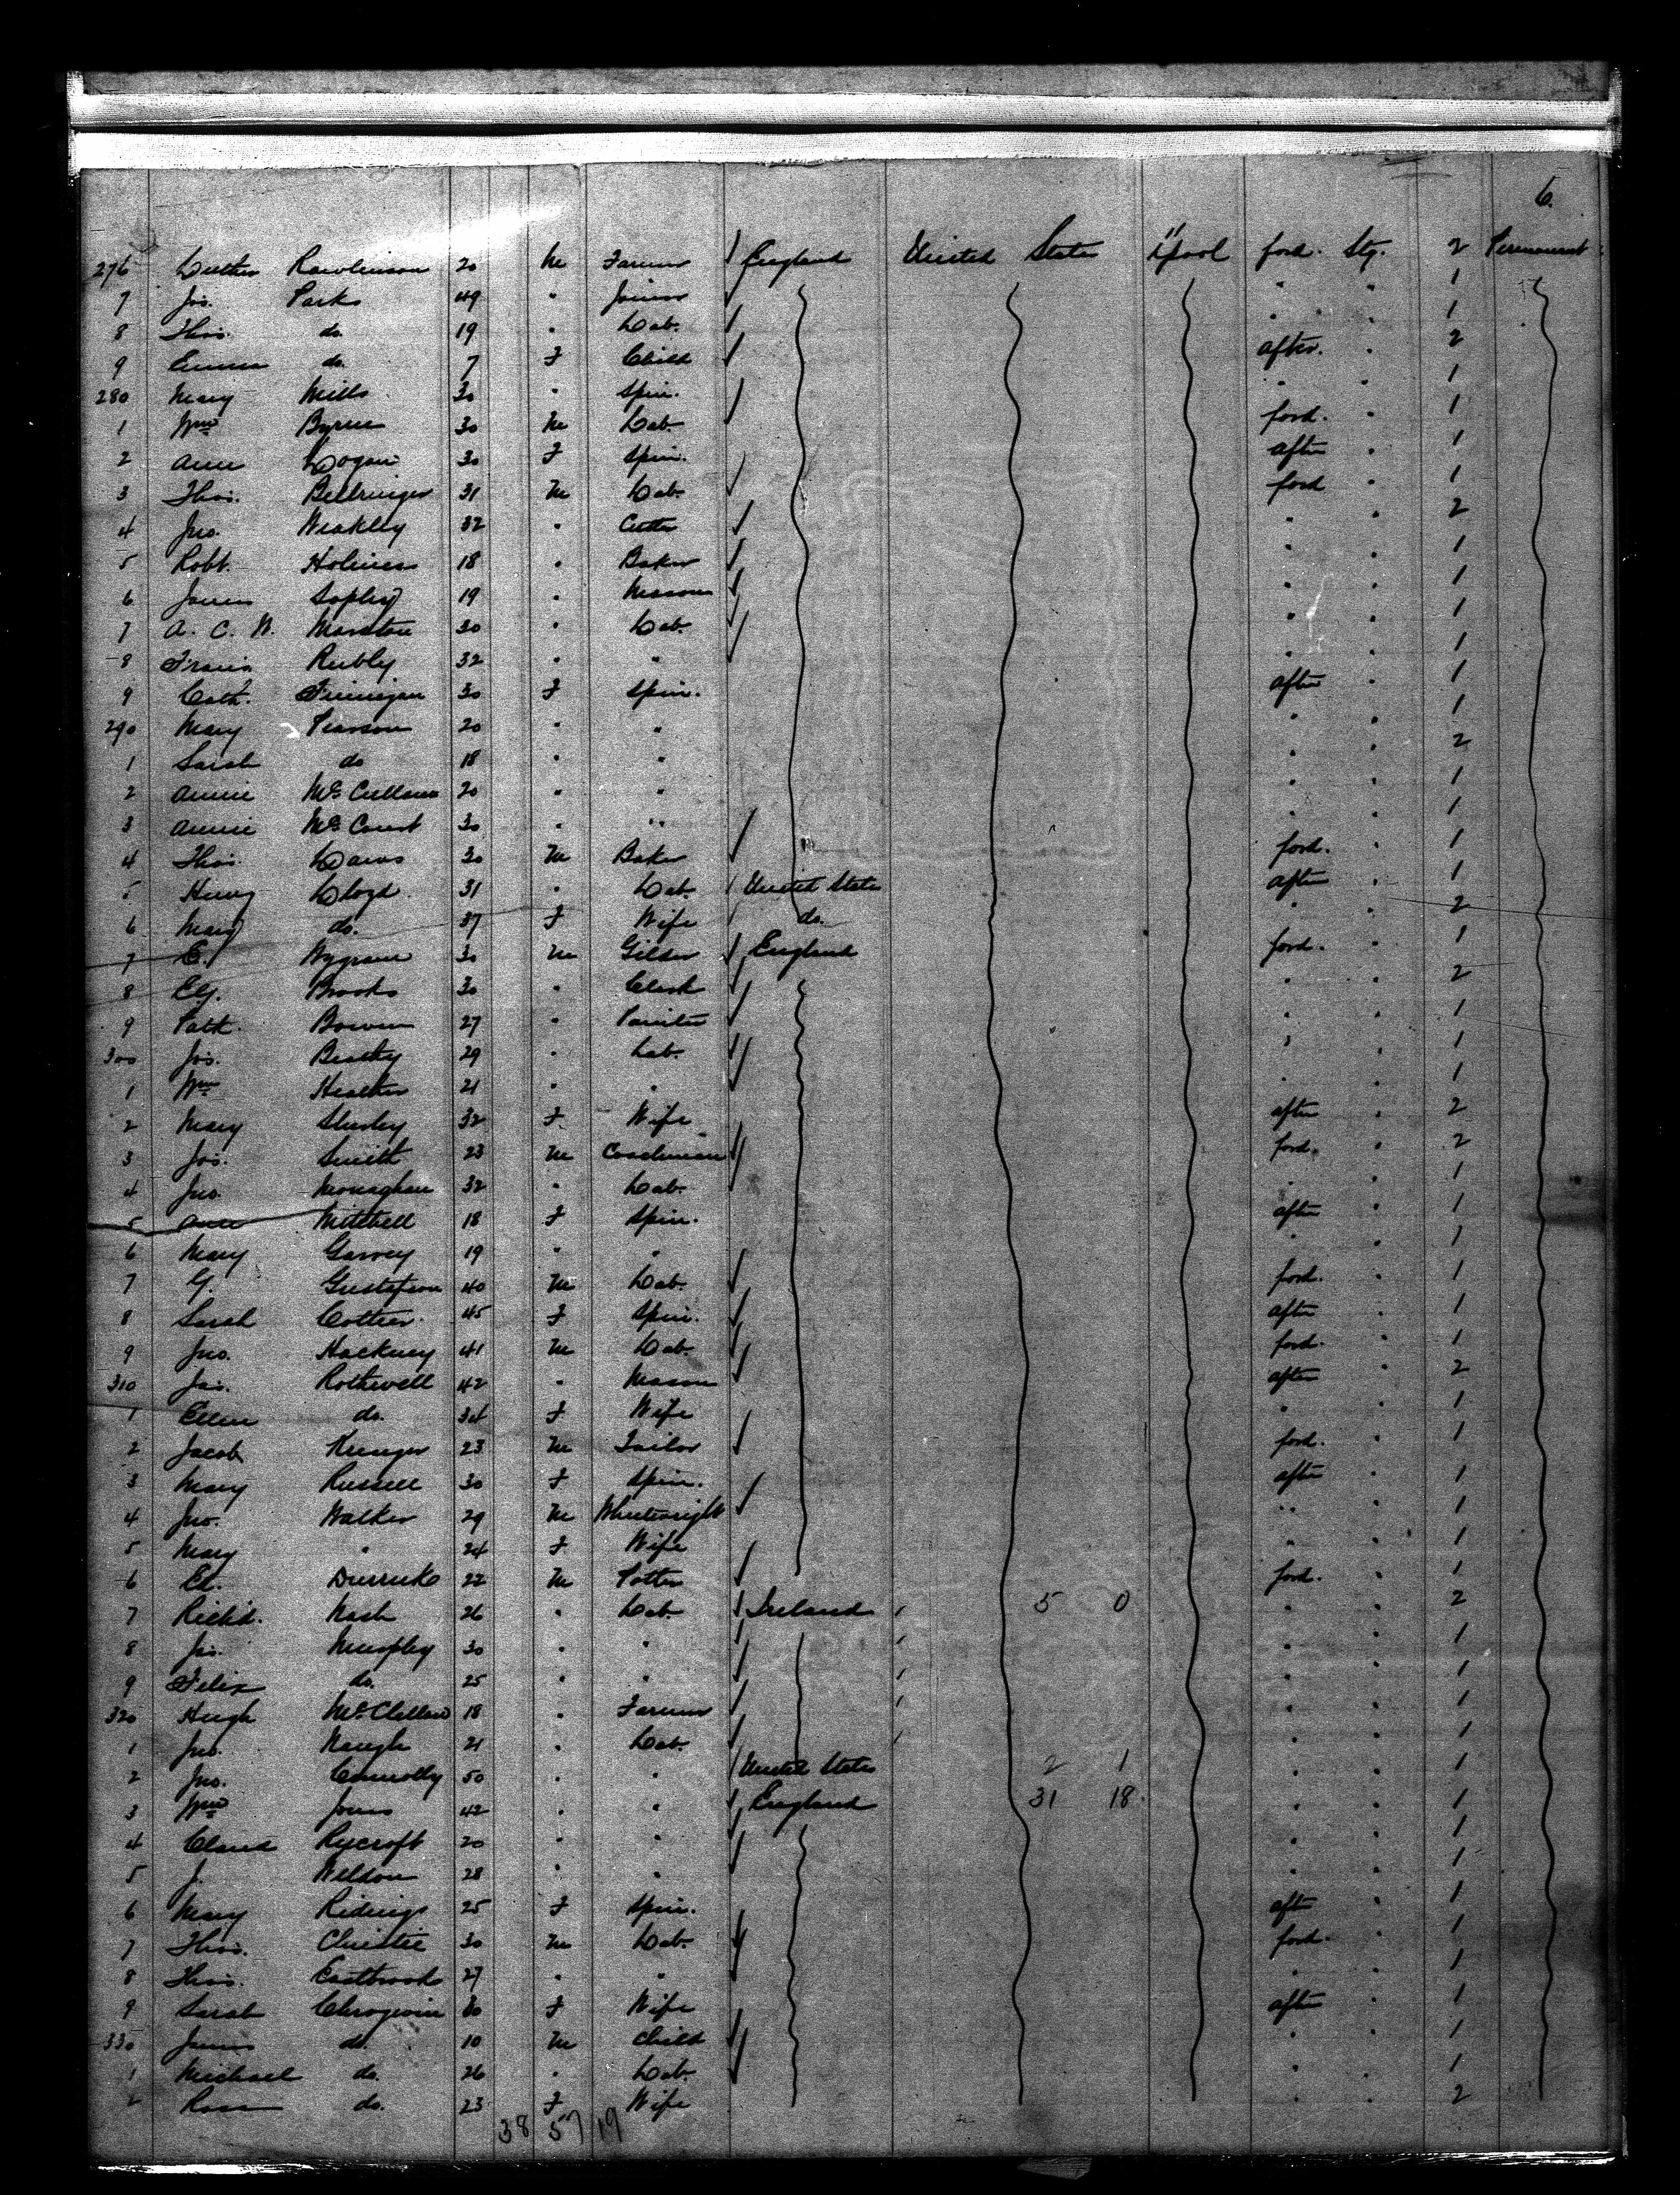 6.
276 Luther Rawlinson 20 M Farmer England United States L'pool ford. Stg. 2 Permanent
7 Jos. Parks 49 " Joiner " " 1
8 Thos. do. 19 " Lab. " " 1
9 Emma do. 7 F Child after. " 2
280 Mary Mills 30 " Spin. " " 1
1 Wm Byrne 30 M Lab. ford. " 1
2 Ann Logan 30 F Spin. after " 1
3 Thos. Bellringer 31 M Lab. ford " 1
4 Jno. Weakley 32 " Cutter " " 2
5 Robt. Holmes 18 " Baker " " 1
6 James Sopley 19 " Mason " " 1
7 A. C. W. Marston 30 " Lab. " " 1
8 Francis Rubly 32 " " " " 1
9 Cath. Finnigan 30 F Spin. after " 1
290 Mary Pearson 20 " " " " 1
1 Sarah do 18 " " " " 2
2 Annie McCullam 20 " " " " 1
3 Annie McCourt 30 " " " " 1
4 Thos. Laws 30 M Baker ford. " 1
5 Henry Lloyd 31 " Lab. United States after " 1
6 Mary do. 37 F Wife do. " " 2
7 C. Wygram 30 M Gilder England ford. " 1
8 Brooks 30 " Clerk " " 2
9 Patk. Bowen 27 " Painter " " 1
300 Jos. Beatty 29 " Lab. " " 1
1 Wm Heather 21 " " " " 1
2 Mary Shirley 32 F. Wife after " 2
3 Jos. Smith 23 M Coachman ford. " 2
4 Jno. Monaghan 32 " Lab. " " 1
5 Ann Mitchell 18 F Spin. after " 1
6 Mary Garvey 19 " " " " 1
7 G. Gustafson 40 M Lab. ford. " 1
8 Sarah Cottier 45 F Spin. after " 1
9 Jno. Hackney 41 M Lab. ford. " 1
310 Jas. Rothwell 42 " Mason after " 2
1 Ellen do. 34 F Wife " " 1
2 Jacob Kruger 23 M Tailor ford. " 1
3 Mary Russell 30 F Spin. after " 1
4 Jno. Walker 29 M Wheelwright " " 1
5 Mary " 24 F Wife " " 1
6 Ed. Durrick 22 M Potter ford. " 1
7 Richd. Nash 26 " Lab. Ireland 5 0 " " 2
8 Jas. Murphy 30 " " " " 1
9 Felix do. 25 " " " " 1
320 Hugh McClellan 18 " Farmer " " 1
1 Jno. Naugh 21 " Lab. " " 1
2 Jno. Connolly 50 " " United States 2 1 " " 1
3 Wm Jones 42 " " England 31 18 " " 1
4 Claud Rycroft 20 " " " " 1
5 J. Weldon 28 " " " " 1
6 Mary Ridings 25 F Spin. aft " 1
7 Thos. Christie 30 M Lab. ford. " 1
8 Thos. Eastbrook 27 " " " " 1
9 Sarah 30 F Wife after " 1
330 James do. 10 M Child " " 1
1 Michael do. 26 " Lab. " " 1
2 Rose do. 23 F Wife " " 2
38 57 19